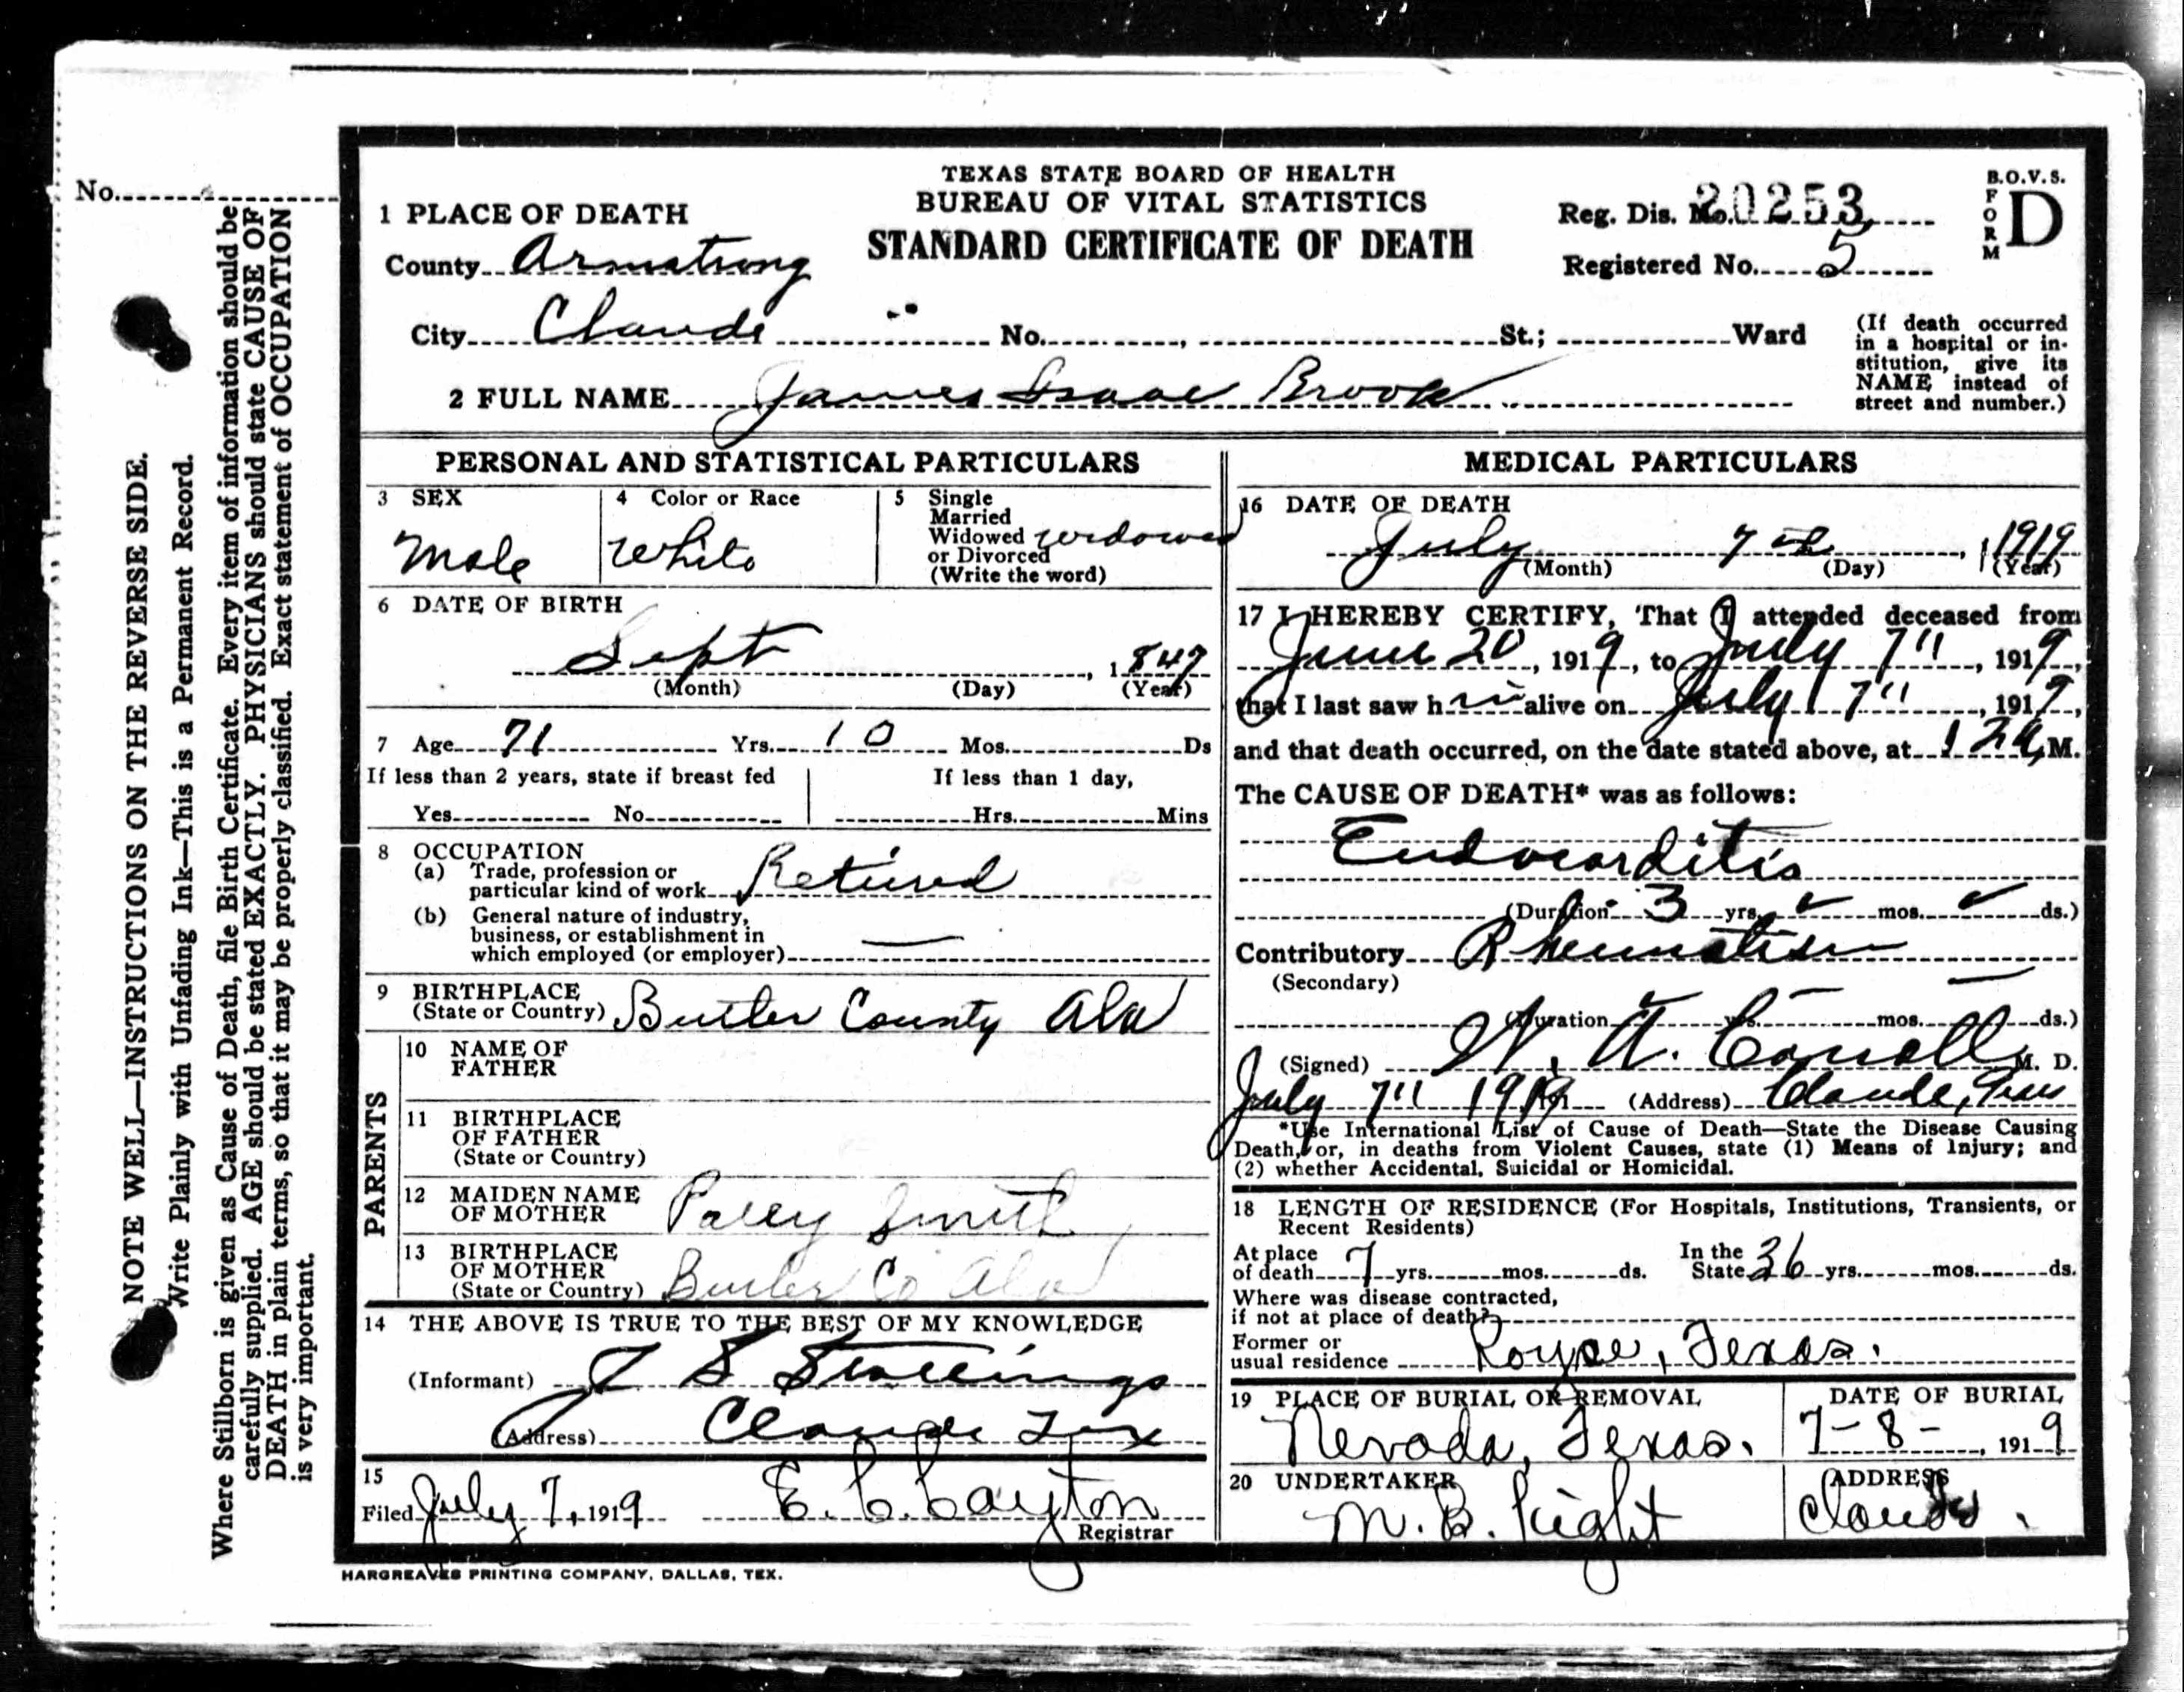 No.
NOTE WELL—INSTRUCTIONS ON THE REVERSE SIDE.
Write Plainly with Unfading Ink—This is a Permanent Record.
Where Stillborn is given as Cause of Death, file Birth Certificate. Every item of information should be
carefully supplied. AGE should be stated EXACTLY. PHYSICIANS should state CAUSE OF
DEATH in plain terms, so that it may be properly classified. Exact statement of OCCUPATION
is very important.
TEXAS STATE BOARD OF HEALTH
BUREAU OF VITAL STATISTICS
STANDARD CERTIFICATE OF DEATH
Reg. Dis. No. 20253
Registered No. 5
B.O.V.S.
FORM D
1 PLACE OF DEATH
County Armstrong
City Claude No. , St.; Ward
(If death occurred
in a hospital or in-
stitution, give its
NAME instead of
street and number.)
2 FULL NAME James Isaac Brook
PERSONAL AND STATISTICAL PARTICULARS
3 SEX
Male
4 Color or Race
White
5 Single
Married
Widowed widowed
or Divorced
(Write the word)
6 DATE OF BIRTH
Sept , 1847
(Month) (Day) (Year)
7 Age 71 Yrs. 10 Mos. Ds
If less than 2 years, state if breast fed
Yes No
If less than 1 day,
Hrs. Mins
8 OCCUPATION
(a) Trade, profession or
particular kind of work Retired
(b) General nature of industry,
business, or establishment in
which employed (or employer) —
9 BIRTHPLACE
(State or Country) Butler County Ala
PARENTS
10 NAME OF
FATHER
11 BIRTHPLACE
OF FATHER
(State or Country)
12 MAIDEN NAME
OF MOTHER Smith
13 BIRTHPLACE
OF MOTHER
(State or Country) Butler Co Ala
14 THE ABOVE IS TRUE TO THE BEST OF MY KNOWLEDGE
(Informant) J S Stallings
(Address) Claude Tex
15
Filed July 7, 1919 E. C. Cayton
Registrar
MEDICAL PARTICULARS
16 DATE OF DEATH
July 7th , 1919
(Month) (Day) (Year)
17 I HEREBY CERTIFY, That I attended deceased from
June 20, 1919, to July 7", 1919,
that I last saw him alive on July 7", 1919,
and that death occurred, on the date stated above, at M.
The CAUSE OF DEATH* was as follows:
Endocarditis
(Duration 3 yrs. ✓ mos. ✓ ds.)
Contributory Rheumatism
(Secondary)
(Duration yrs. mos. ds.)
(Signed) W. A. M. D.
July 7" 1919 (Address) Claude, Tex
*Use International List of Cause of Death—State the Disease Causing
Death, or, in deaths from Violent Causes, state (1) Means of Injury; and
(2) whether Accidental, Suicidal or Homicidal.
18 LENGTH OF RESIDENCE (For Hospitals, Institutions, Transients, or
Recent Residents)
At place
of death 7 yrs. mos. ds.
In the
State 36 yrs. mos. ds.
Where was disease contracted,
if not at place of death?
Former or
usual residence Royse, Texas.
19 PLACE OF BURIAL OR REMOVAL
Nevada, Texas.
DATE OF BURIAL
7-8-, 1919
20 UNDERTAKER
M. B. Hight
ADDRESS
Claude.
HARGREAVES PRINTING COMPANY, DALLAS, TEX.